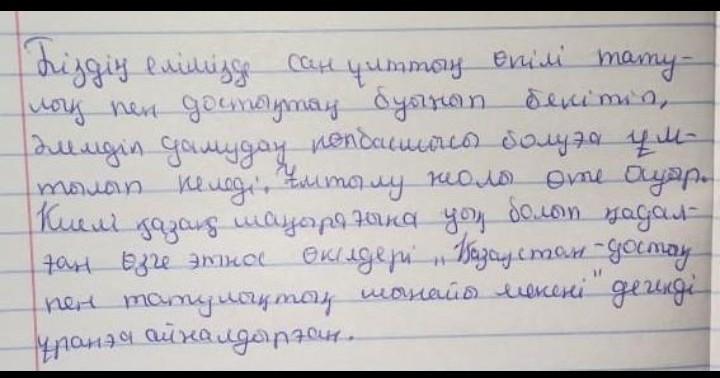 Біздің елімізде сан ұлттың өкілі тату-
лық пен достықтан буынып бекітіп,
әлемдіп дамудаң көпбасшысы болуға ұм-
тылып келеді. Ұмтылу жолы өте ауыр.
Киелі қазақ шаңырағына уық болып қадал-
ған өзге этнос өкілдері „Қазақстан-достық
пен татулықтың шынайы мекені" дегенді
ұранға айналдырған.